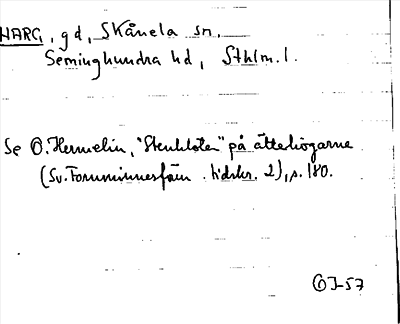 HARG, gd, Skånela sn,
Seminghundra hd, Sthlm. l.
Se O. Hermelin, "Stenkloten" på ättehögarne
(Sv. Fornminnesfören. tidskr. 2), s. 180.
OJ-57